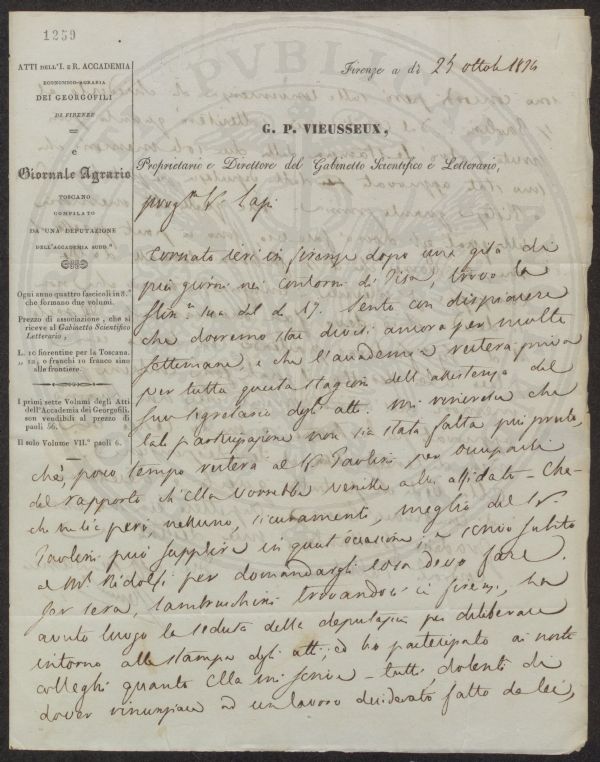 1259
ATTI DELL'I. E R. ACCADEMIA
ECONOMICO-AGRARIA
DEI GEORGOFILI
DI FIRENZE
e
Giornale Agrario
TOSCANO
COMPILATO
DA UNA DEPUTAZIONE
DELL'ACCADEMIA SUDD.ª
Ogni anno quattro fascicoli in 8.º
che formano due volumi.
Prezzo di associazione, che si
riceve al Gabinetto Scientifico
Letterario,
L. 10 fiorentine per la Toscana.
o franchi 10 franco sino
alle frontiere.
I primi sette Volumi degli Atti
dell'Accademia dei Georgofili,
son vendibili al prezzo di
paoli 56.
Il solo Volume VII.º paoli 6.
Firenze a dì 25 ottob.
G. P. VIEUSSEUX,
Proprietario e Direttore del Gabinetto Scientifico e Letterario,
Lapi
Tornato ieri in firenze dopo una gita di
più giorni nei contorni di Pisa, trovo la
sua del dì 17. Sento con dispiacere
che dovremo star divisi ancora per molte
settimane e che l'accademia resterà priva
per tutta questa stagione dell'assistenza del
suo segretario degli atti. Mi rincresce che
tale partecipazione non sia stata fatta più presto,
chè poco tempo resterà al Sr Paolini per occuparsi
del rapporto ch'Ella vorrebbe venisse a lui affidato - Che
che ne sia però, nessuno, sicuramente, meglio del Sr
Paolini può supplire in quest'occasione; e scrivo subito
al Ridolfi per domandargli cosa devo fare.
Jer sera, Lambruschini trovandosi in firenze, ha
avuto luogo la seduta della deputazione per deliberare
intorno alla stampa degli atti, ed ho partecipato ai nostri
colleghi quanto Ella mi scrive - tutti dolenti di
dover rinunziare ad un lavoro desiderato fatto da lei,